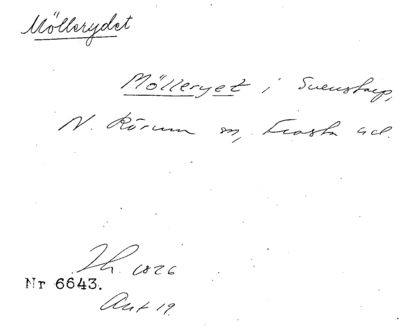 Möllerydet
Mölleryet i Svenstorp,
N. Rörum sn, Frosta hd.
Jh. 1826
Nr 6643.
Akt 19.